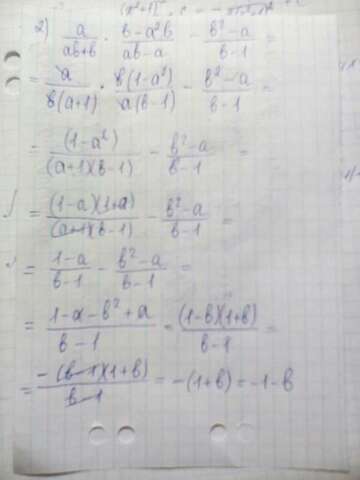 2) a/(ab+b) · (b-a²b)/(ab-a) - (b²-a)/(b-1) =
= a/(b(a+1)) · b(1-a²)/(a(b-1)) - (b²-a)/(b-1) =
= (1-a²)/((a+1)(b-1)) - (b²-a)/(b-1) =
= (1-a)(1+a)/((a+1)(b-1)) - (b²-a)/(b-1) =
= (1-a)/(b-1) - (b²-a)/(b-1) =
= (1-a-b²+a)/(b-1) = (1-b)(1+b)/(b-1) =
= -(b-1)(1+b)/(b-1) = -(1+b) = -1-b